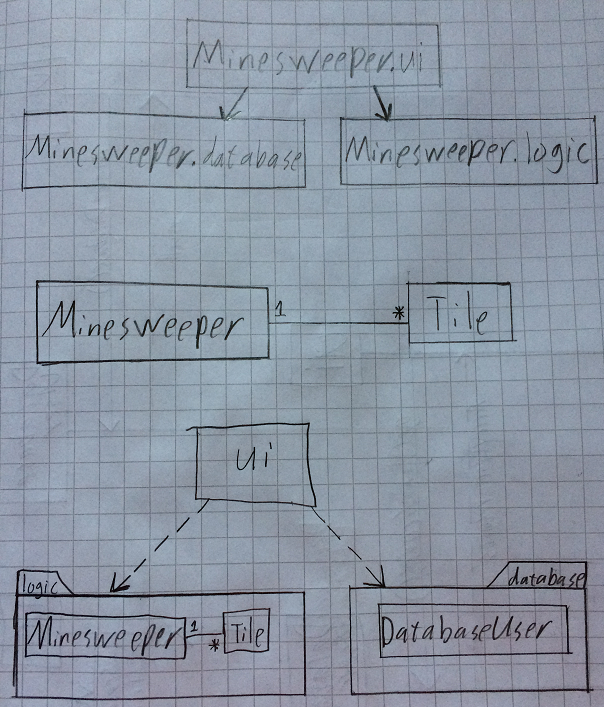 Minesweeper.ui
Minesweeper.database
Minesweeper.logic
Minesweeper
1
*
Tile
ui
logic
database
Minesweeper
1
*
Tile
DatabaseUser